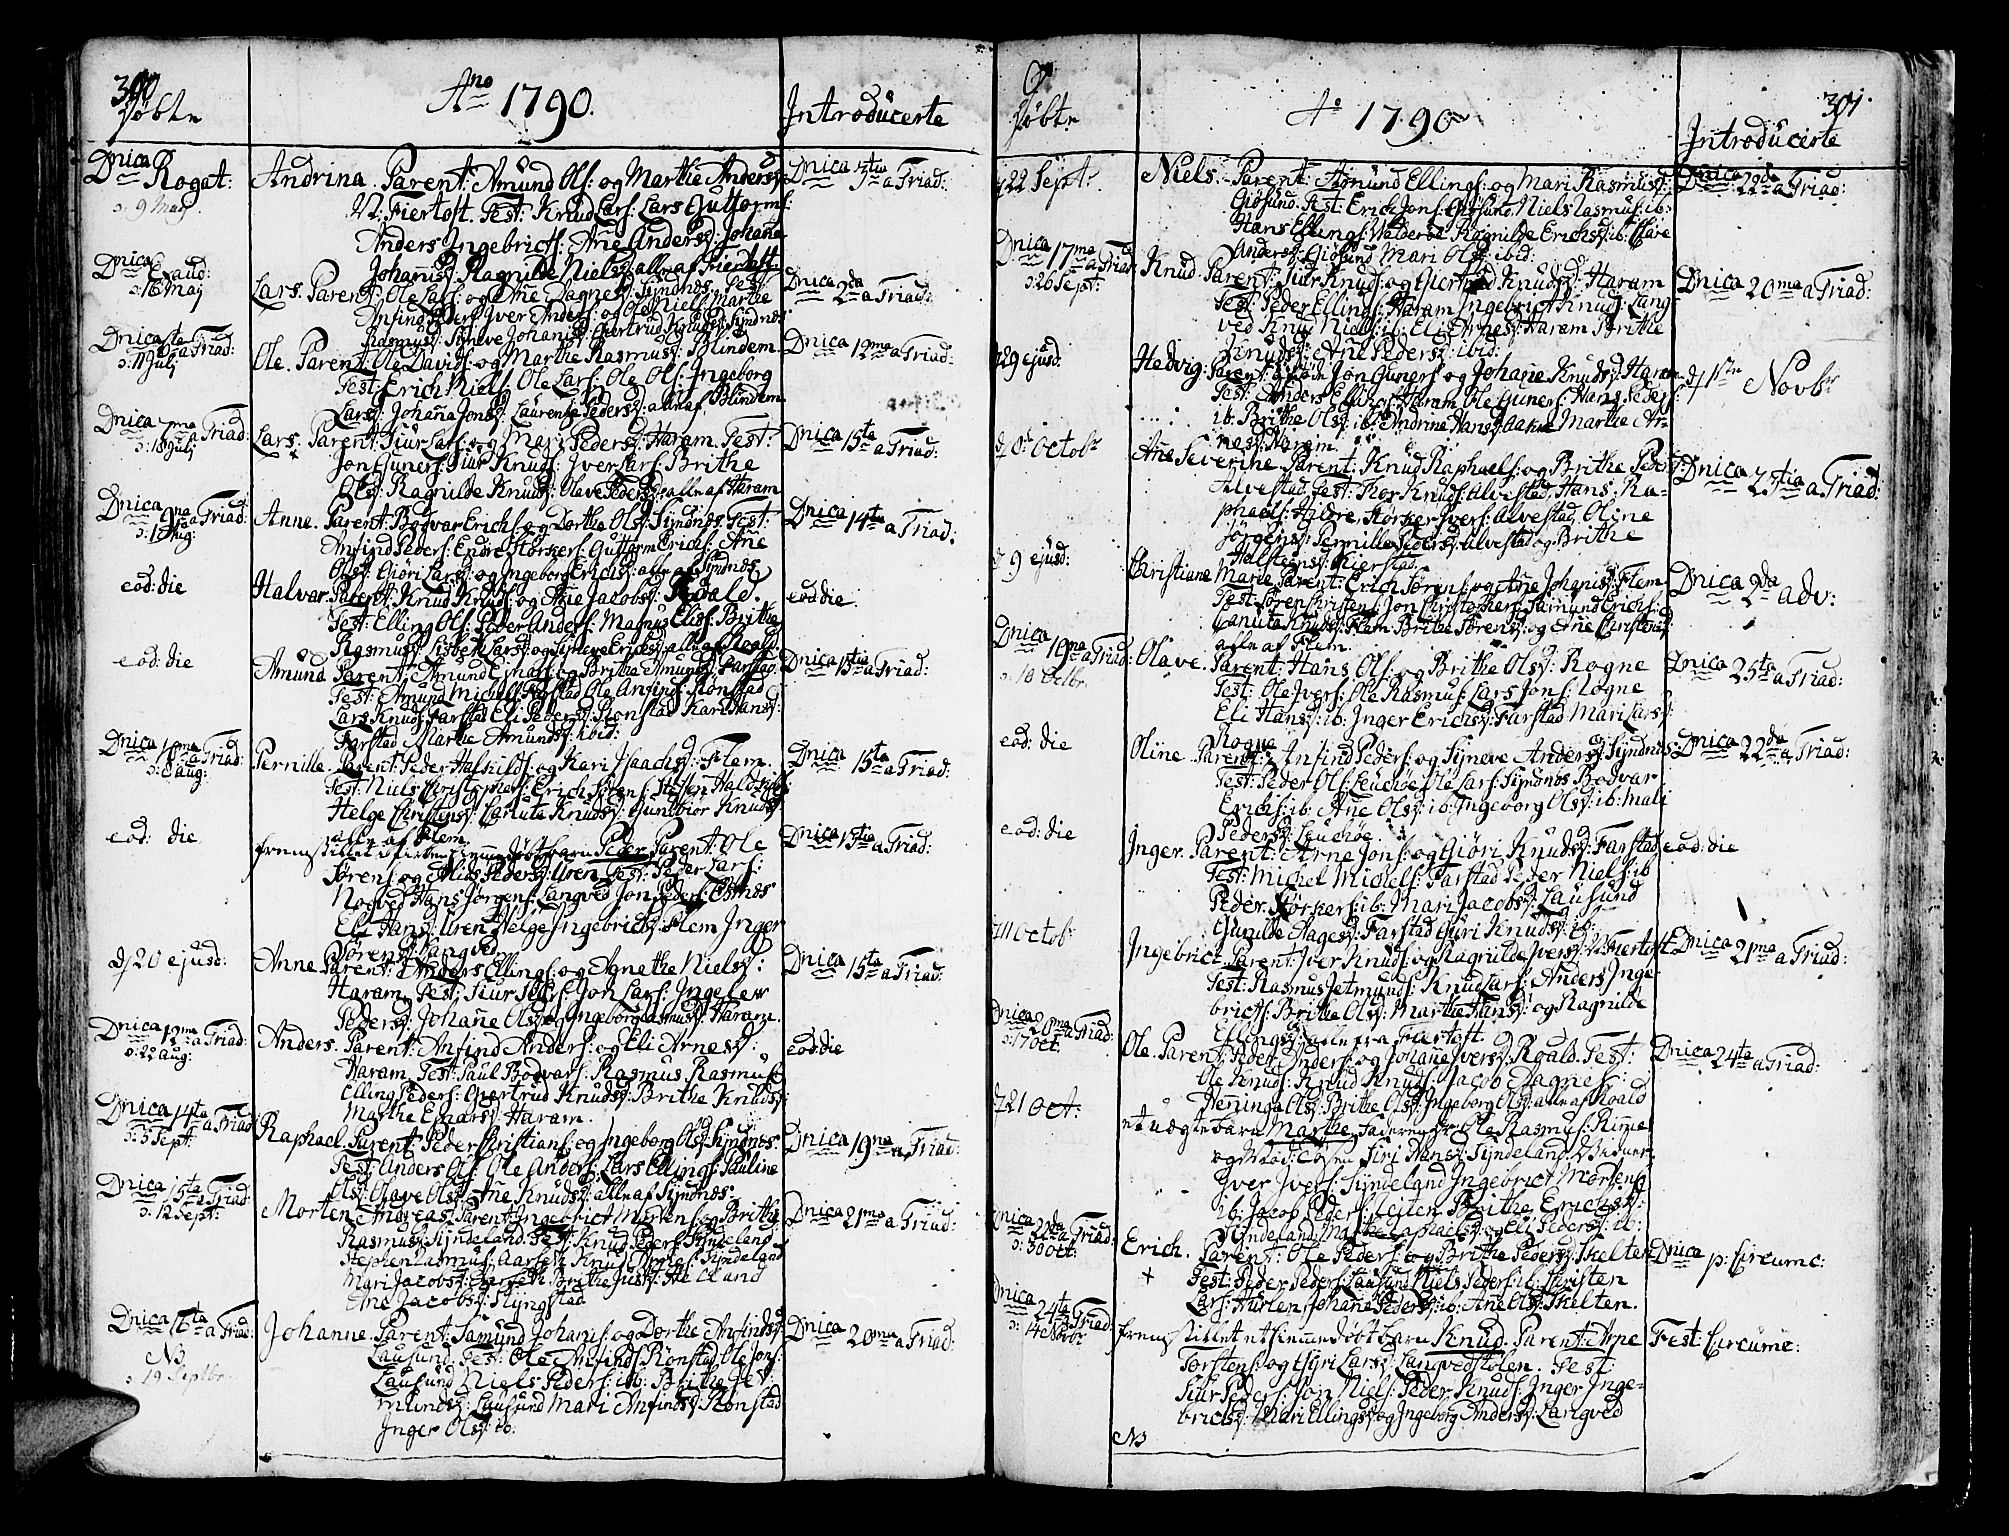 300
Døbte
Ano 1790.
Introducerte
Dnica Rogat:
ɔ: 9 May
Andrina. Parent: Amund Ols: og Marthe Andersd:
Fiertoft. Test: Knud Lars: Lars Guttorms:
Anders Ingebricts: Ane Andersd: Johane
Johanisd: Ragnilde Nielsd: alle af Fiertoft
Dnica 3tia a Triad:
Dnica Exaud:
ɔ: 16 May
Lars. Parent: Ole Lars: og Ane Dagnesd: Symdnes. Test:
Anfind Peders: Iver Anders: og Ole Niels: Marthe
Rasmusd: Synneve Johanisd: Giertrud Knudsd: Symdnes
Dnica 2da a Triad:
Dnica 6ta a Triad:
ɔ: 11 July
Ole. Parent: Ole Davids: og Marthe Rasmusd: Blindem
Test: Erich Niels: Ole Lars: Ole Ols: Ingeborg
Larsd: Johana Jonsd: Laurentze Pedersd: alle af Blindem
Dnica 12ma a Triad:
Dnica 7ma a Triad:
ɔ: 18 July
Lars. Parent: Siur Lars: og Mari Pedersd: Haram. Test:
Jon Guners: Siur Knuds: Iver Lars: Brithe
Olsd: Ragnilde Knudsd: Olave Pedersd: alle af Haram
Dnica 15ta a Triad:
Dnica 9na a Triad:
ɔ: 1 Aug:
Anne. Parent: Bodvar Erichs: og Dorthe Olsd: Symdnes. Test:
Anfind Peders: Endre Størkers: Guttorm Erichs: Ane
Olsd: Giøri Larsd: og Ingeborg Erichsd: alle af Symdnes
Dnica 14ta a Triad:
eod: die
Halvar. Parent: Knud Knuds: og Ane Jacobsd: Roald.
Test: Elling Ols: Peder Anders: Magnus Elias: Brithe
Rasmusd: Lisbet Larsd: og Synneve Erichsd: alle af Roald:
eod: die
eod: die
Amund. Parent: Amund Einars: og Brithe Amundsd: Farstad.
Test: Amund Michels: Farstad Ole Anfinds: Rønstad
Lars Knuds: Farstad Eli Pedersd: Rønstad Kari Hansd:
Farstad Marthe Amundsd: ibid:
Dnica 13tia a Triad:
Dnica 10ma a Triad:
ɔ: 8 aug:
Pernille. Parent: Peder Hafskilds: og Kari Isachsd: Flem.
Test: Niels Christophers: Erich Sørens: Steffen Haldsteens:
Helge Christensd: Canuta Knudsd: Gundbior Knudsd:
alle af Flem.
Dnica 15ta a Triad:
eod: die
fremstillet i kirken hiemmedøbt barn Peder Parent: Ole
Sørens: og Alis Pedersd: Uren. Test: Peder Lars:
Nogved Hans Jørgens: Langved Jon Peders: Estnes
Eli Hansd: Uren Helge Ingebrictsd: Flem Inger
Sørensd: Langved
Dnica 13tia a Triad:
d 20 ejusd:
Anne. Parent: Anders Ellings: og Agnethe Nielsd:
Haram. Test: Siur Iders: Jon Lars: Ingelev
Pedersd: Johane Olsd: og Ingeborg Rasmusd: Haram.
Dnica 15ta a Triad:
Dnica 12ma a Triad:
ɔ: 22 Aug:
Anders. Parent: Anfind Anders: og Eli Arnesd:
Haram. Test: Paul Bodvars: Rasmus Rasmus:
Elling Peders: Giertrud Knudsd: Brithe Knudsd:
Marthe Einarsd: Haram.
eod: die
Dnica 14ta a Triad
ɔ: 5 Sept:
Raphael. Parent: Peder Christians: og Ingeborg Olsd: Symdnes
Test: Anders Ols: Ole Anders: Lars Ellings: Pauline
Olsd: Olave Olsd: Ane Knudsd: alle af Symdnes
Dnica 19na a Triad:
Dnica 15ta a Triad:
ɔ: 12 Sept:
Morten Andreas. Parent: Ingebrict Mortens: og Brithe
Rasmusd: Syndeland. Test: Knud Peders: Syndeland
Stephen Rasmus: Aarseth Knud Syndeland
Mari Jacobsd: Aarseth Brithe
Ane Jacobsd: Slyngstad
Dnica 21ma a Triad:
Dnica 16ta a Triad:
NB
ɔ: 19 Septbr.
Johanne. Parent: Samund Johanis: og Dorthe Anfindsd:
Lausund. Test: Ole Anfinds: Rønstad Ole Jons:
Lausund Niels Peders: ib: Brithe Jet-
mundsd: Lausund Mari Anfindsd: Rønstad
Inger Olsd: ib:
Dnica 20ma a Triad:
301.
Døbte
Ao 1790
Introducerte
d 22 Sept:
Niels. Parent: Amund Ellings: og Mari Rasmusd:
Giøsund. Test: Erich Jons: Giøsund Niels Rasmus: ib:
Hans Ellings: Walderøe Ragnilde Erichsd: ib: Mare
Andersd: Giøsund Mari Olsd: ibid:
Dnica 22da a Triad:
Dnica 17ma a Triad:
ɔ: 26 Sept:
Knud. Parent: Siur Knuds: og Giertrud Knudsd: Haram
Test: Peder Ellings: Haram Ingebrict Knuds: Lang
ved Knud Niels: ib: Eli Arnesd: Haram Brithe
Knudsd: Ane Pedersd: ibid:
Dnica 20ma a Triad:
d 29 ejusd:
Hedvig. Parent: Jon Guners: og Johane Knudsd: Haram
Test: Anders Haram Ole Guners: Hans Peders:
ib: Brithe Olsd: ib: Andrine Hansd: Marthe Ar-
nesd:
d 1ste Novbr
d 8 Octobr
Ane Severine. Parent: Knud Raphaels: og Brithe Pedersd:
Alvestad. Test: Thor Knuds: Alvestad, Hans Ra-
phaels: Hildre, Størker Ivers: Alvestad, Oline
Jørgensd: Pernille Pedersd: Alvestad og Brithe
Halsteensd: Kierstad
Dnica 23tia a Triad:
d 9 ejusd:
Christiane Marie. Parent: Erich Sørens: og Ane Johanisd: Flem
Test: Søren Christens: Jon Christophers: Samund Erichs:
Canuta Knudsd: Flem Brithe Sørensd: og Ane Christensd:
alle af Flem.
Dnica 2da adv:
Dnica 19na a Triad:
ɔ: 10 Octbr.
Olave. Parent: Hans Ols: og Brithe Olsd: Rogne
Test: Ole Ivers: Ole Rasmus: Lars Jons: Rogne
Eli Hansd: ib: Inger Erichsd: Farstad Mari Larsd:
Rogne
Dnica 25ta a Triad:
eod: die
Oline. Parent: Anfind Peders: og Synneve Andersd: Symdnes:
Test: Peder Ols: Leuchøe Ole Lars: Symdnes Bodvar
Erichs: ib: Ane Olsd: ib: Ingeborg Olsd: ib: Mali
Pedersd: Leuchøe
Dnica 22da a Triad:
eod: die
Inger. Parent: Arne Jons: og Giøri Knudsd: Farstad
Test: Michel Michels: Farstad Peder Niels: ib
Peder Størkers: ib: Mari Jacobsd: Lausund
Gunilde Aagesd: Farstad Guri Knudsd: ib:
eod: die
d 11 Octobr
Ingebrict. Parent: Iver Knuds: og Ragnilde Iversd: Fiertoft.
Test: Rasmus Jetmunds: Knud Lars: Anders Inge-
bricts: Brithe Olsd: Marthe Hansd: og Ragnilde
Ellingsd: alle fra Fiertoft.
Dnica 21ma a Triad:
Dnica 20ma a Triad:
ɔ: 17 Oct.
Ole. Parent: Peder Anders: og Johane Iversd: Roald. Test:
Ole Knuds: Knud Knuds: Jacob Dagnes:
Henninga Olsd: Brithe Olsd: Ingeborg Olsd: alle af Roald
Dnica 24ta a Triad:
d 21 Oct:
et uægte barn Marthe, faderen Ole Rasmus: Rimøe
og Moderen Siri Hansd: Syndeland. Vidner
Iver Ivers: Syndeland Ingebrict Mortens:
ib: Jacob Peders: Leiten Brithe Erichsd:
Syndeland Marthe Raphaelsd: og Eli Pedersd: ib:
Dnica 22da a Triad:
ɔ: 30 Oct:
Erich. Parent: Ole Peders: og Brithe Pedersd: Skelten
Test: Peder Peders: Lausund Niels Peders: ib: Christen
Lars: Hurlen Johane Pedersd: ib: Ane Olsd: Skelten.
Dnica p: Circumc:
Dnica 24ta a Triad:
ɔ: 14 Novbr
fremstillet et hiemmedøbt barn Knud. Parent: Arne
Torstens: og Gyri Larsd: Langvedstølen. Test:
Siur Peders: Jon Niels: Peder Knuds: Inger Inge-
brictsd: Mari Ellingsd: og Ingeborg Andersd: Langved
Fest: Circumc:
NB